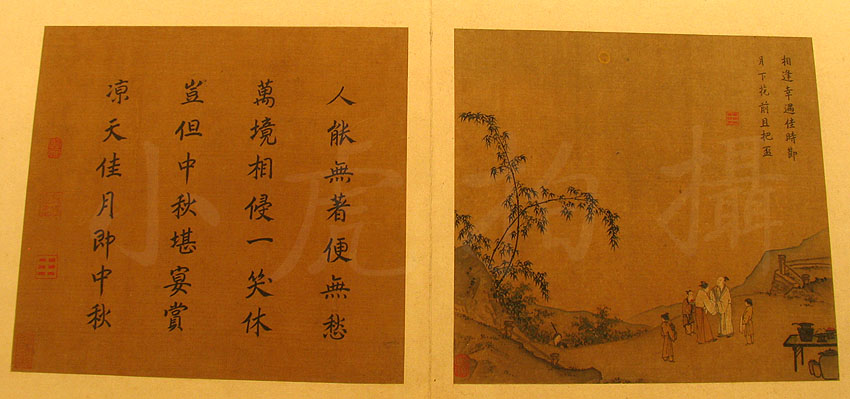 相逢幸遇佳時節
月下花前且把盃
人能無著便無愁
萬境相侵一笑休
豈但中秋堪宴賞
凉天佳月即中秋
小虎拍攝